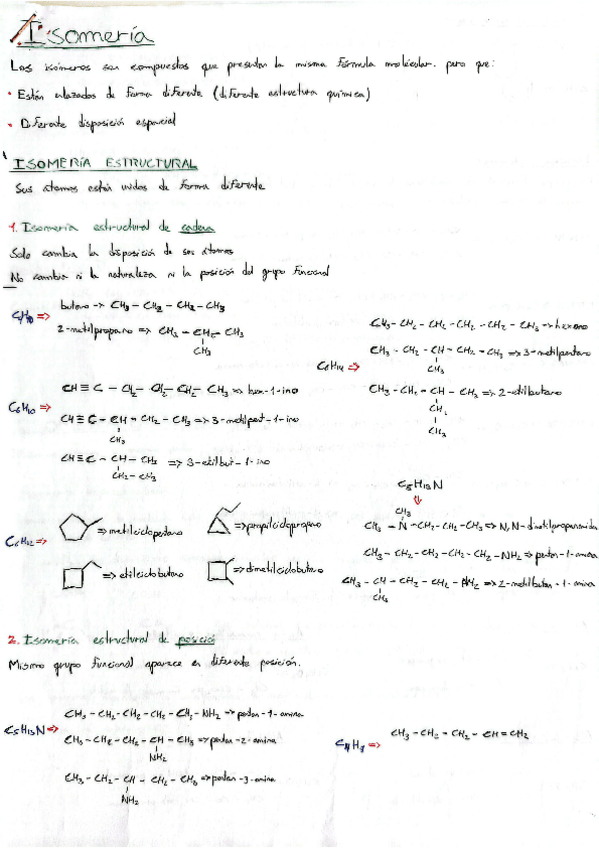 Isomería
Los isómeros son compuestos que presentan la misma fórmula molécular. pero que:
• Están enlazados de forma diferente (diferente estructura química)
• Diferente disposición espacial
ISOMERÍA ESTRUCTURAL
Sus átomos están unidos de forma diferente
1. Isomería estructural de cadena
Solo cambia la disposición de sus átomos
No cambia ni la naturaleza ni la posición del grupo funcional
C4H10 => butano -> CH3 - CH2 - CH2 - CH3
2-metilpropano => CH3 - CH - CH3
CH3
C6H14 =>
CH3 - CH2 - CH2 - CH2 - CH2 - CH3 => hexano
CH3 - CH2 - CH - CH2 - CH3 => 3-metilpentano
CH3
CH3 - CH2 - CH - CH3 => 2-etilbutano
CH2
CH3
C6H10 =>
CH ≡ C - CH2 - CH2 - CH2 - CH3 => hex-1-ino
CH ≡ C - CH - CH2 - CH3 => 3-metilpent-1-ino
CH3
CH ≡ C - CH - CH3 => 3-etilbut-1-ino
CH2 - CH3
C6H12 =>
=> metilciclopentano
=> propilciclopropano
=> etilciclobutano
=> dimetilciclobutano
C5H13N
CH3
CH3 - N - CH2 - CH2 - CH3 => N,N-dimetilpropanamida
CH3 - CH2 - CH2 - CH2 - CH2 - NH2 => pentan-1-amina
CH3 - CH - CH2 - CH2 - NH2 => 2-metilbutan-1-amina
CH3
2. Isomería estructural de posició
Mismo grupo funcional aparece en diferente posición.
C5H13N =>
CH3 - CH2 - CH2 - CH2 - CH2 - NH2 => pentan-1-amina
CH3 - CH2 - CH2 - CH - CH3 => pentan-2-amina
NH2
CH3 - CH2 - CH - CH2 - CH3 => pentan-3-amina
NH2
C4H8 => CH3 - CH2 - CH2 - CH = CH2